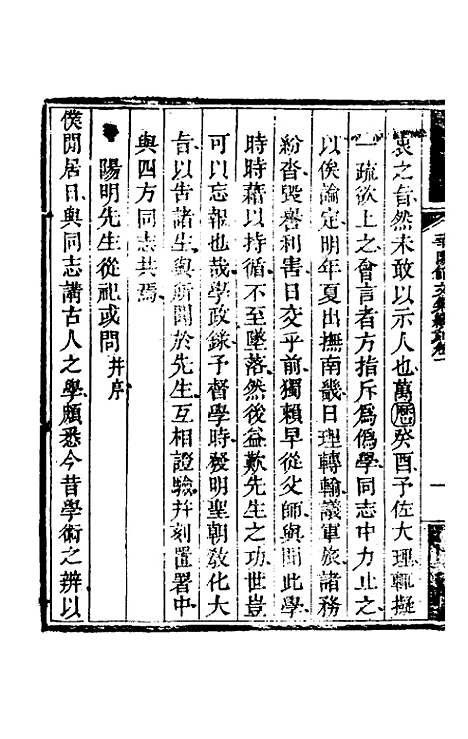 衷之旨然未敢以示人也萬曆癸酉予佐大理輒擬
一疏欲上之會言者方指斥爲僞學同志中力止之
以俟論定明年夏出撫南畿日理轉輸議軍旅諸務
紛沓毀譽利害日交乎前獨賴早從父師與聞此學
時時藉以持循不至墜落然後益歎先生之功世豈
可以忘報也哉學政錄予督學時發明聖朝敎化大
旨以告諸生與所聞於先生互相證驗幷刻置署中
與四方同志共焉
陽明先生從祀或問幷序
僕閒居日與同志講古人之學頗悉今昔學術之辨以